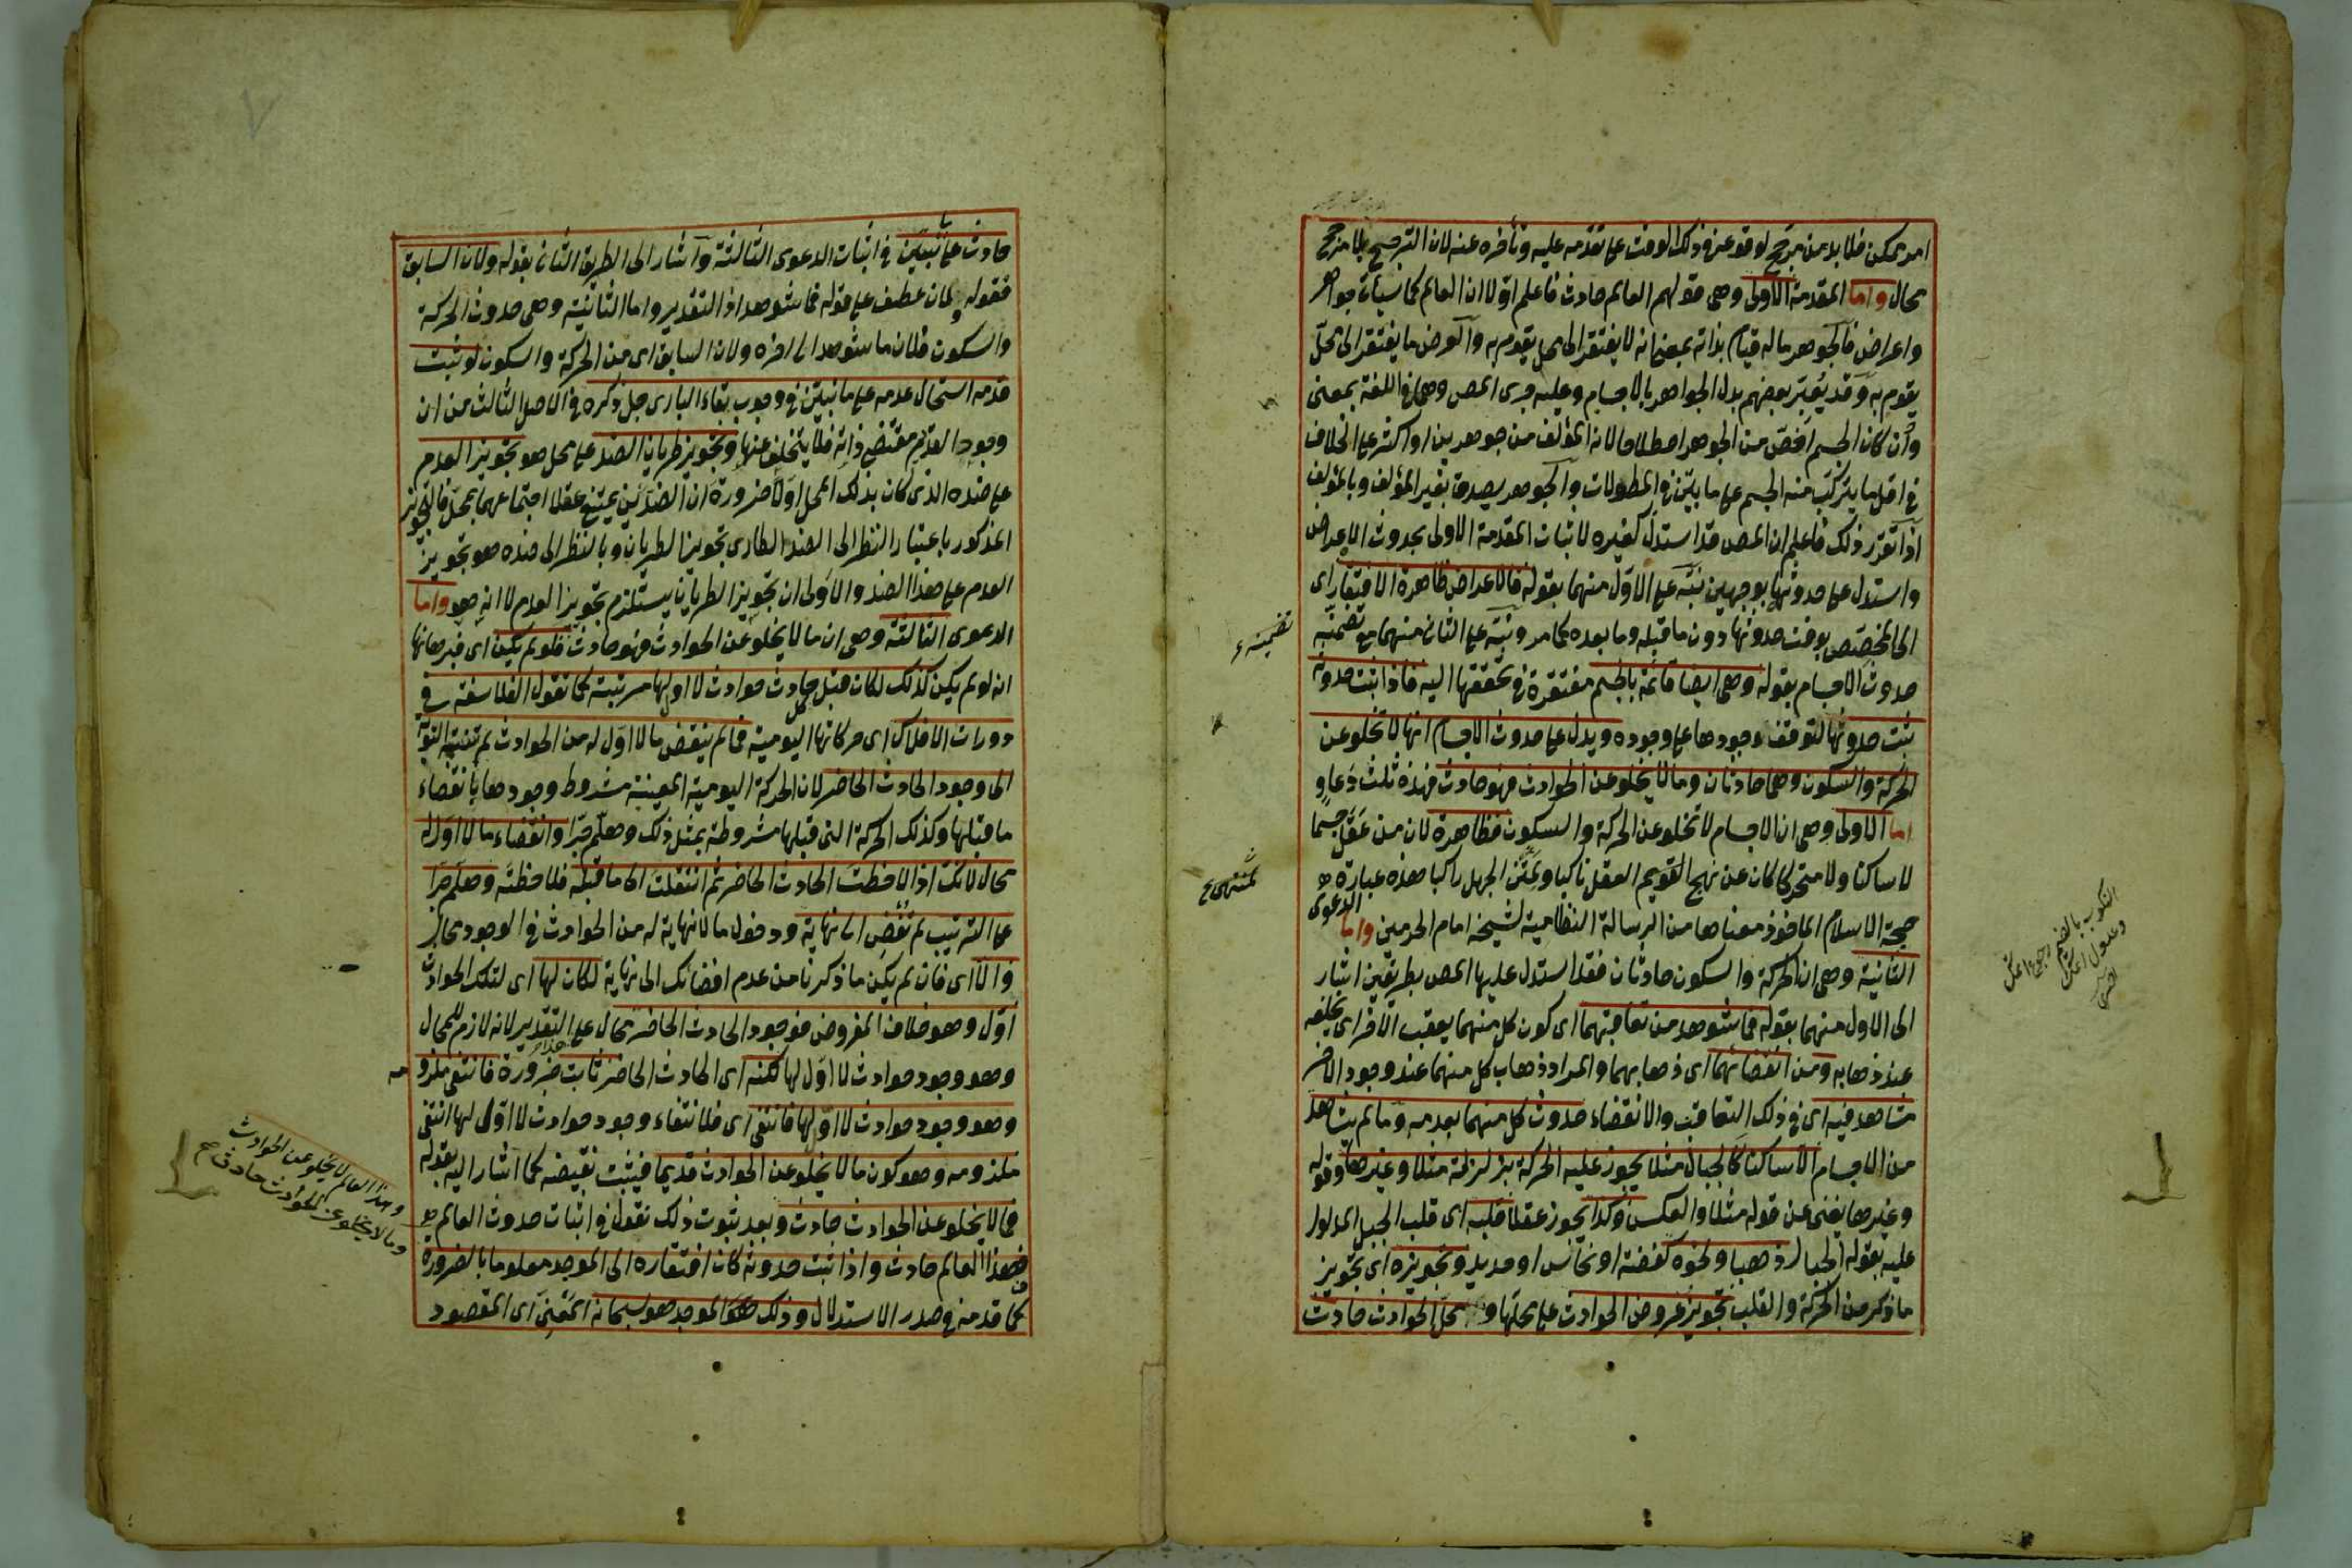 امر ممكن فلا بد من مرجح لوقوعه في ذلك الوقت على تقدمه عليه وتأخره عنه لان الترجيح بلا مرجح
محال واما المقدمة الأولى وهى قولهم العالم حادث فاعلم اولا ان العالم كما سيأتى جواهر
واعراض فالجوهر ما له قيام بذاته بمعنى انه لا يفتقر الى محل يقوم به والعرض ما يفتقر الى محل
يقوم به وقد يعبر بعضهم بدل الجواهر بالاجسام وعليه جرى المص وهما في اللغة بمعنى
وان كان الجسم اخص من الجوهر اصطلاحا لانه المؤلف من جوهرين او اكثر على الخلاف
في اقل ما يتركب منه الجسم على ما بين في المطولات والجوهر يصدق بغير المؤلف وبالمؤلف
اذا تقرر ذلك فاعلم ان المص قد استدل كغيره لاثبات المقدمة الاولى بحدوث الاعراض
واستدل على حدوثها بوجهين نبه على الاول منهما بقوله فالاعراض ظاهرة الافتقار اى
الى المخصص بوقت حدوثها دون ما قبله وما بعده كما مر ونبه على الثانى منهما مع تضمنه
حدوث الاجسام بقوله وهى ايضا قائمة بالجسم مفتقرة في تحققها اليه فاذا ثبت حدوثه
ثبت حدوثها لتوقف وجودها على وجوده ويدل على حدوث الاجسام انها لا تخلو عن
الحركة والسكون وهما حادثان وما لا يخلو عن الحوادث فهو حادث فهذه ثلث دعاو
اما الاولى وهى ان الاجسام لا تخلو عن الحركة والسكون فظاهرة لان من عقل جسما
لا ساكنا ولا متحركا كان عن نهج القويم العقل ناكبا ولمتن الجهل راكبا هذه عبارة
حجة الاسلام الماخوذ معناها من الرسالة النظامية لشيخه امام الحرمين واما الدعوى
الثانية وهى ان الحركة والسكون حادثان فقد استدل عليها المص بطريقين اشار
الى الاول منهما بقوله فما شوهد من تعاقبهما اى كون كل منهما يعقب الاخر اى يخلفه
عند ذهابه ومن انقضائهما اى ذهابهما والمراد ذهاب كل منهما عند وجود الاخر
مشاهد فيه اى في ذلك التعاقب والانقضاء حدوث كل منهما بعد عدمه وما لم يشاهد
من الاجسام الا ساكنا كالجبال مثلا يجوز عليه الحركة بزلزلة مثلا وغيرها وقوله
وغيرها يغنى عن قوله مثلا والعكس وكذا يجوز عقلا قلبه اى قلب الجبل المدلول
عليه بقوله الجبال ذهبا ونحوه كفضة او نحاس او حديد وتجويزه اى تجويز
ما ذكر من الحركة والقلب تجويز عروض الحوادث على محلها ومحل الحوادث حادث
تضمينه
لمنتهى
النكوب بالضم
وعدول
حادث على ما نبين في اثبات الدعوى الثالثة واشار الى الطريق الثانى بقوله ولان السابق
فقوله ولان عطف على قوله فما شوهد اذ التقدير واما الثانية وهى حدوث الحركة
والسكون فلان ما شوهد الى اخره ولان السابق اى من الحركة والسكون لو ثبت
قدمه استحال عدمه على ما نبين في وجوب بقاء البارى جل ذكره في الاصل الثالث من ان
وجود القديم مقتضى ذاته فلا يتخلف عنها وتجويز طريان الضد على محل هو تجويز العدم
على ضده الذى كان بذلك المحل اولا ضرورة ان الضدين يمتنع عقلا اجتماعهما بمحل فالتجويز
المذكور باعتبار النظر الى الضد الطارى تجويز الطريان وبالنظر الى ضده هو تجويز
العدم على هذا الضد والاولى ان تجويز الطريان يستلزم تجويز العدم لا انه هو واما
الدعوى الثالثة وهى ان ما لا يخلو عن الحوادث فهو حادث فلو لم يكن اى فبرهانها
انه لو لم يكن كذلك لكان قبل كل حادث حوادث لا اول لها مرتبة كما تقول الفلاسفة في
دورات الافلاك اى حركاتها اليومية فما لم ينقض ما لا اول له من الحوادث لم تنته النوبة
الى وجود الحادث الحاضر لان الحركة اليومية المعينة مشروط وجودها بانقضاء
ما قبلها وكذلك الحركة التى قبلها مشروطة بمثل ذلك وهلم جرا وانقضاء ما لا اول له
محال لانك اذا لاحظت الحادث الحاضر ثم انتقلت الى ما قبله فلاحظته وهلم جرا
على الترتيب لم تفض الى نهاية ودخول ما لا نهاية له من الحوادث في الوجود محال
والا اى فان لم يكن ما ذكرنا من عدم افضائك الى نهاية لكان لها اى لتلك الحوادث
اول وهو خلاف المفروض فوجود الحادث الحاضر محال على التقدير لانه لازم للمحال
وهو وجود حوادث لا اول لها لكنه اى الحادث الحاضر ثابت ضرورة فانتفى ملزومه
وهو وجود حوادث لا اول لها فانتفى اى فلانتفاء وجود حوادث لا اول لها انتفى
ملزومه وهو كون ما لا يخلو عن الحوادث قديما فيثبت نقيضه كما اشار اليه بقوله
فما لا يخلو عن الحوادث حادث وبعد ثبوت ذلك نقول في اثبات حدوث العالم
فهذا العالم حادث واذا ثبت حدوثه كان افتقاره الى الموجد معلوما بالضرورة
كما قدمنه في صدر الاستدلال وذلك الموجد هو سبحانه المعنى اى المقصود
وهذا العالم لا يخلو عن الحوادث
وما لا يخلو عن الحوادث حادث